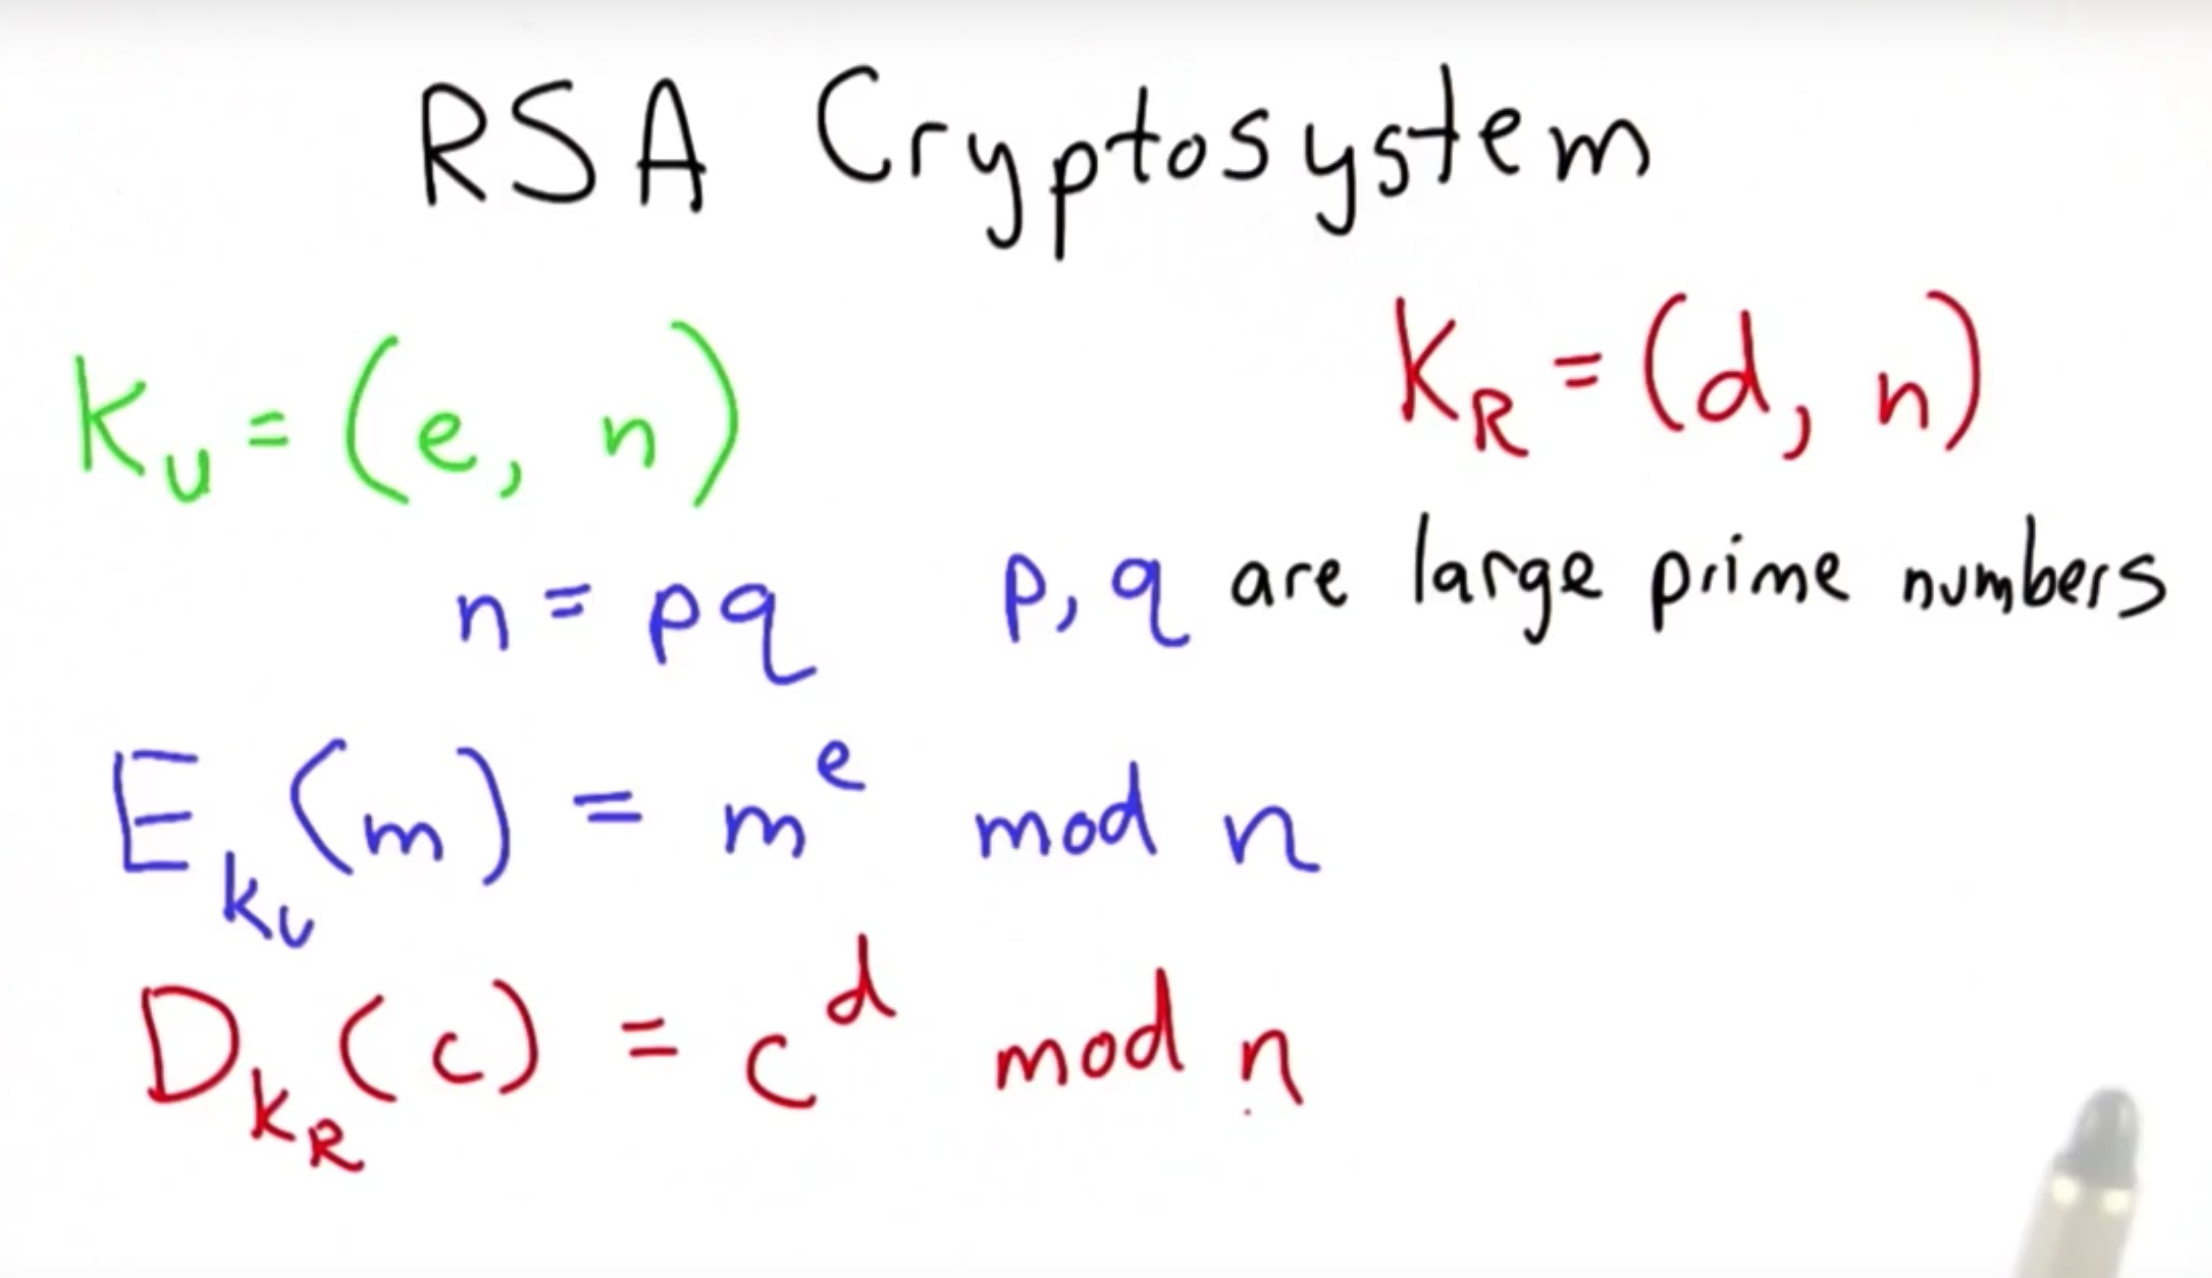 RSA Cryptosystem
K_U = (e, n) K_R = (d, n)
n = pq p, q are large prime numbers
E_{K_U}(m) = m^e mod n
D_{K_R}(c) = c^d mod n